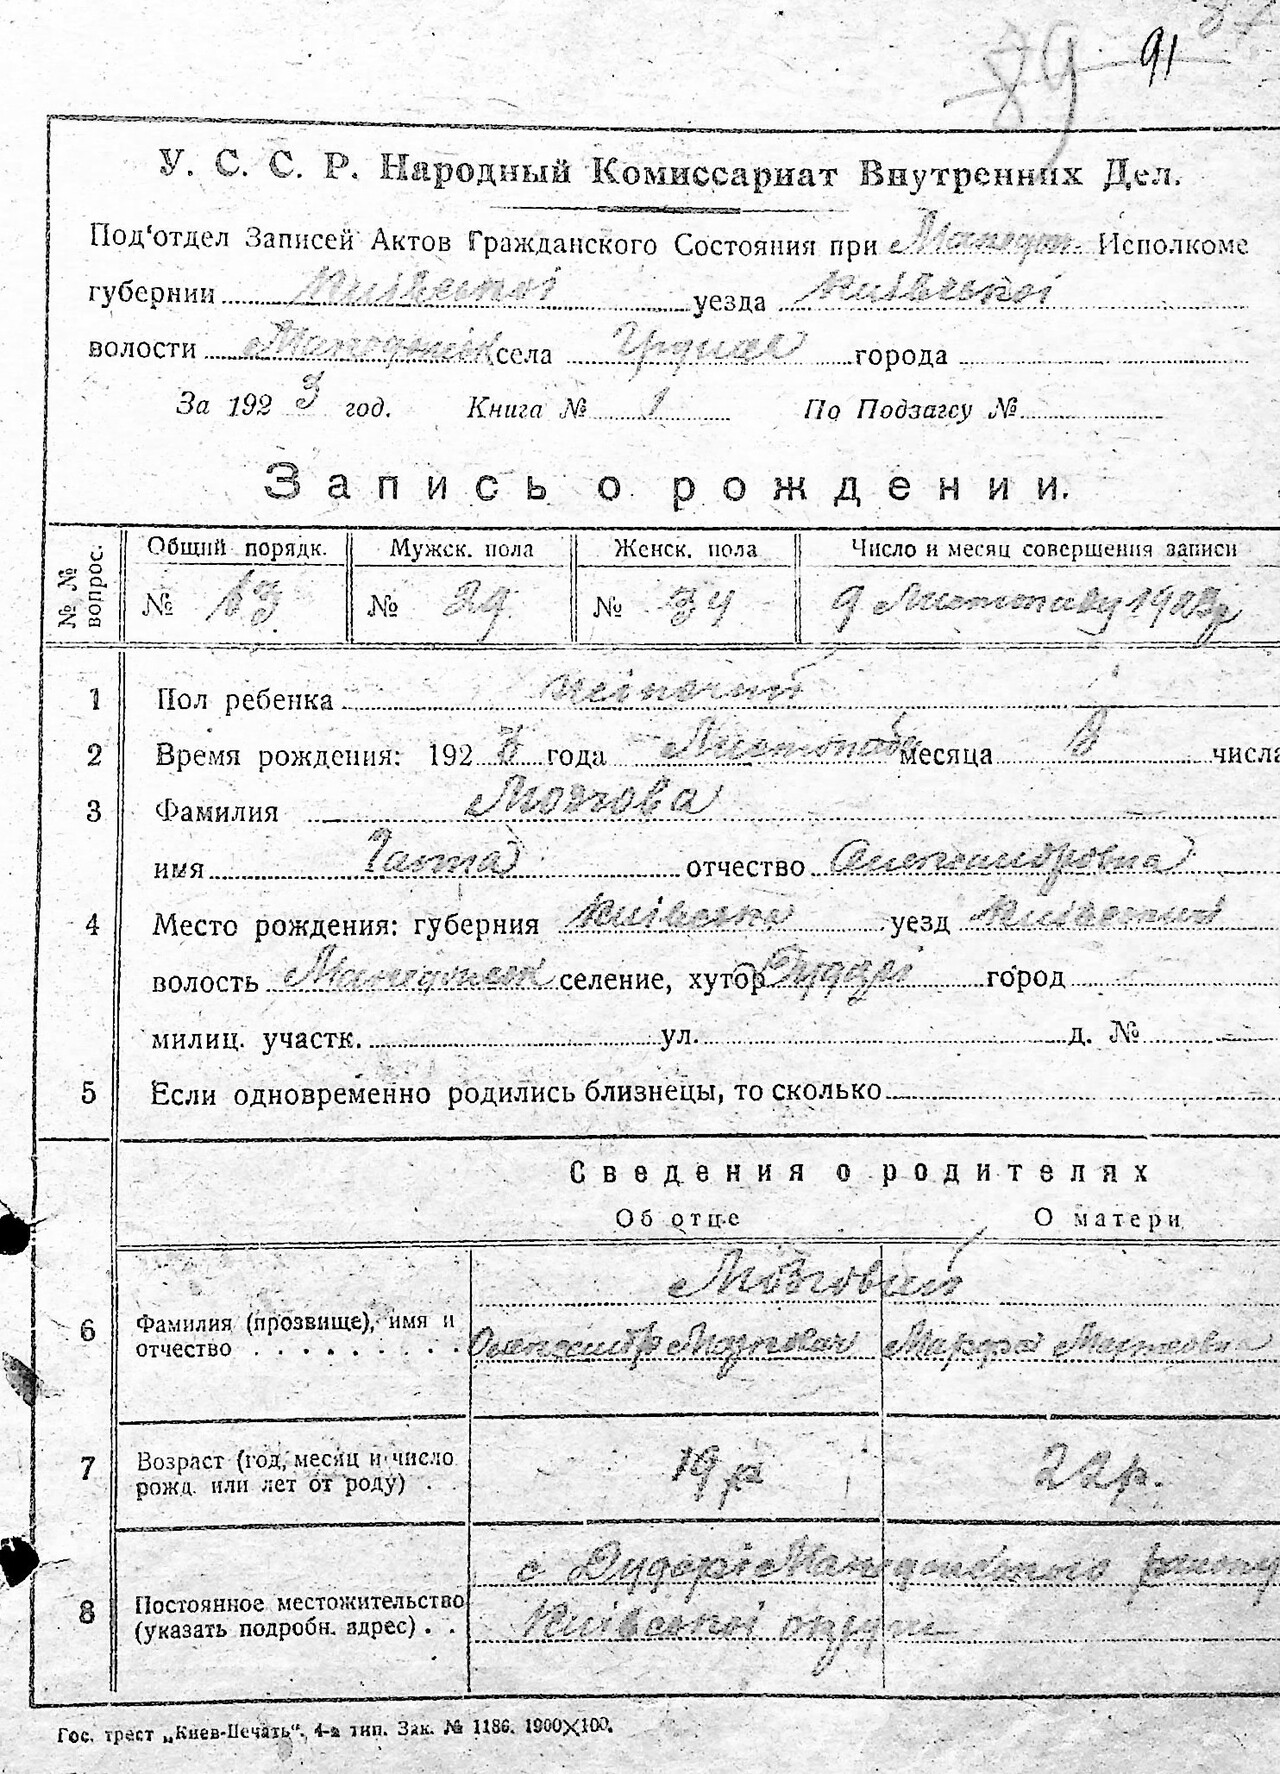 89 91
У. С. С. Р. Народный Комиссариат Внутренних Дел.
Под‘отдел Записей Актов Гражданского Состояния при Исполкоме
губернии Київської уезда Київської
волости села города
За 1923 год. Книга № 1 По Подзагсу №
Запись о рождении.
№ № вопрос. Общий порядк. Мужск. пола Женск. пола Число и месяц совершения записи
№ 63 № 29 № 34 9
1 Пол ребенка жіночий
2 Время рождения: 1923 года Листопада месяца 8 числа
3 Фамилия Мозгова
имя отчество Олександровна
4 Место рождения: губерния Київська уезд Київський
волость селение, хутор город
милиц. участк. ул. д. №
5 Если одновременно родились близнецы, то сколько
Сведения о родителях
Об отце О матери
Мозговий
6 Фамилия (прозвище), имя и отчество Олександр Марфа
7 Возраст (год, месяц и число рожд. или лет от роду) 19 р 22 р.
8 Постоянное местожительство (указать подробн. адрес) с району
Київської округи
Гос. трест „Киев-Печать“. 4-я тип. Зак. № 1186. 1900×100.